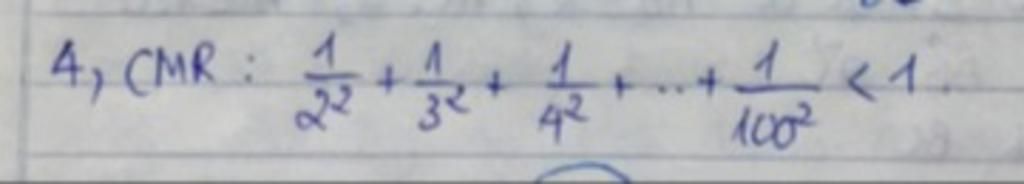 4, CMR : 1/2² + 1/3² + 1/4² + ... + 1/100² < 1